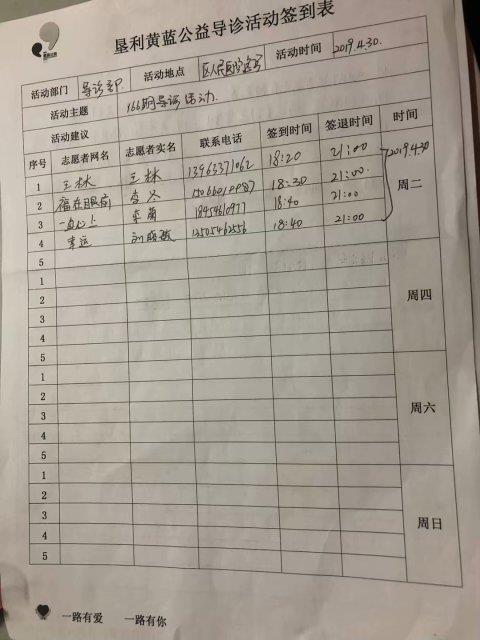 垦利黄蓝公益导诊活动签到表
活动部门 导诊部 活动地点 区人民医院 活动时间 2019.4.30.
活动主题 166期导诊活动.
活动建议
序号 志愿者网名 志愿者实名 联系电话 签到时间 签退时间 时间
1 王林 王林 13963371062 18:20 21:00 2019.4.30
2 福在眼前 李 18:30 21:00 周二
3 一直心上 李菊 18954610977 18:40 21:00
4 幸运 13505462556 18:40 21:00
5
1
2
3 周四
4
5
1
2
3 周六
4
5
1
2
3 周日
4
5
一路有爱 一路有你